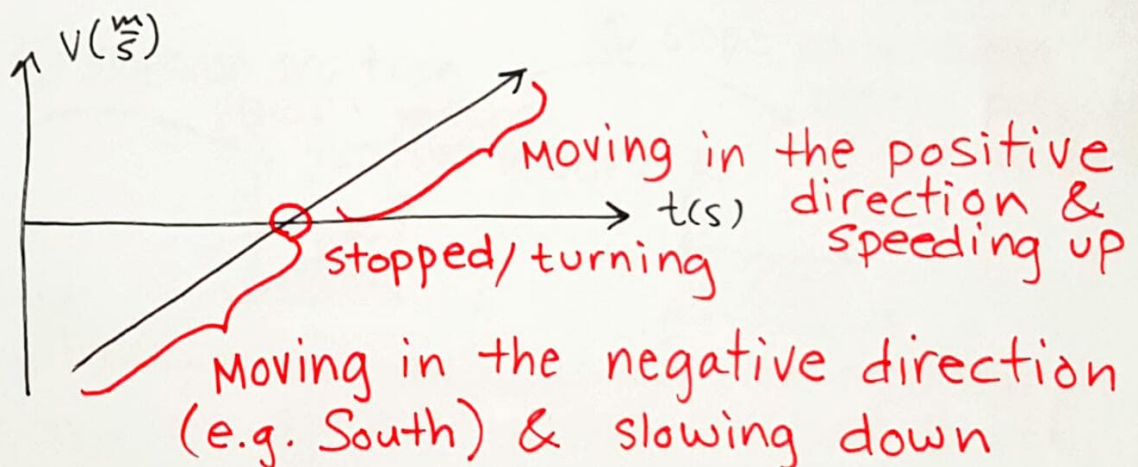 V(m/s)
Moving in the positive
direction &
speeding up
t(s)
stopped/turning
Moving in the negative direction
(e.g. South) & slowing down